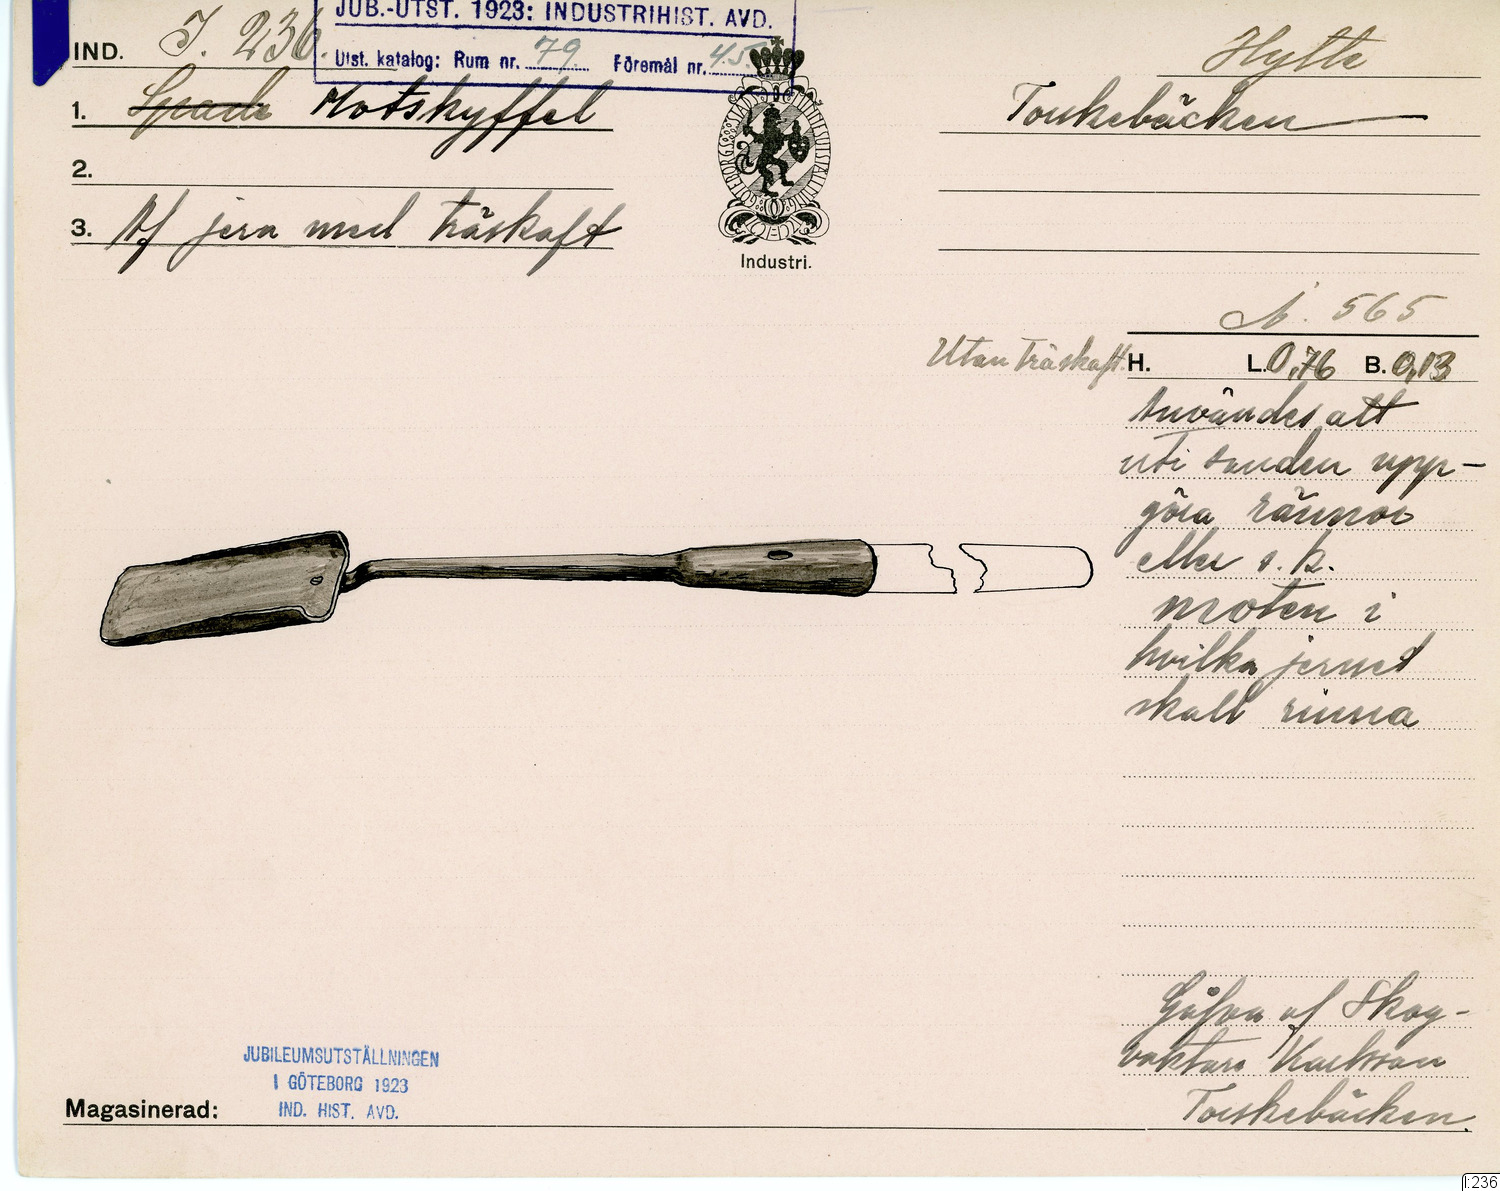 JUB.-UTST. 1923: INDUSTRIHIST. AVD.
Utst. katalog: Rum nr. 79 Föremål nr. 45
IND. I. 236.
Hytte
1. Spade Motskyffel
Torskebäcken
2.
3. Af jern med träskaft
GÖTEBORGS STADS MINNESUTSTÄLLNING
Industri.
N. 565
Utan träskaft. H. L. 0,76 B. 0,13
Användes att
uti sanden upp-
göra rännor
eller s. k.
moten i
hvilka jernet
skall rinna
Gåfva af Skog-
vaktare Karlsson
Torskebäcken.
JUBILEUMSUTSTÄLLNINGEN
I GÖTEBORG 1923
IND. HIST. AVD.
Magasinerad:
I:236